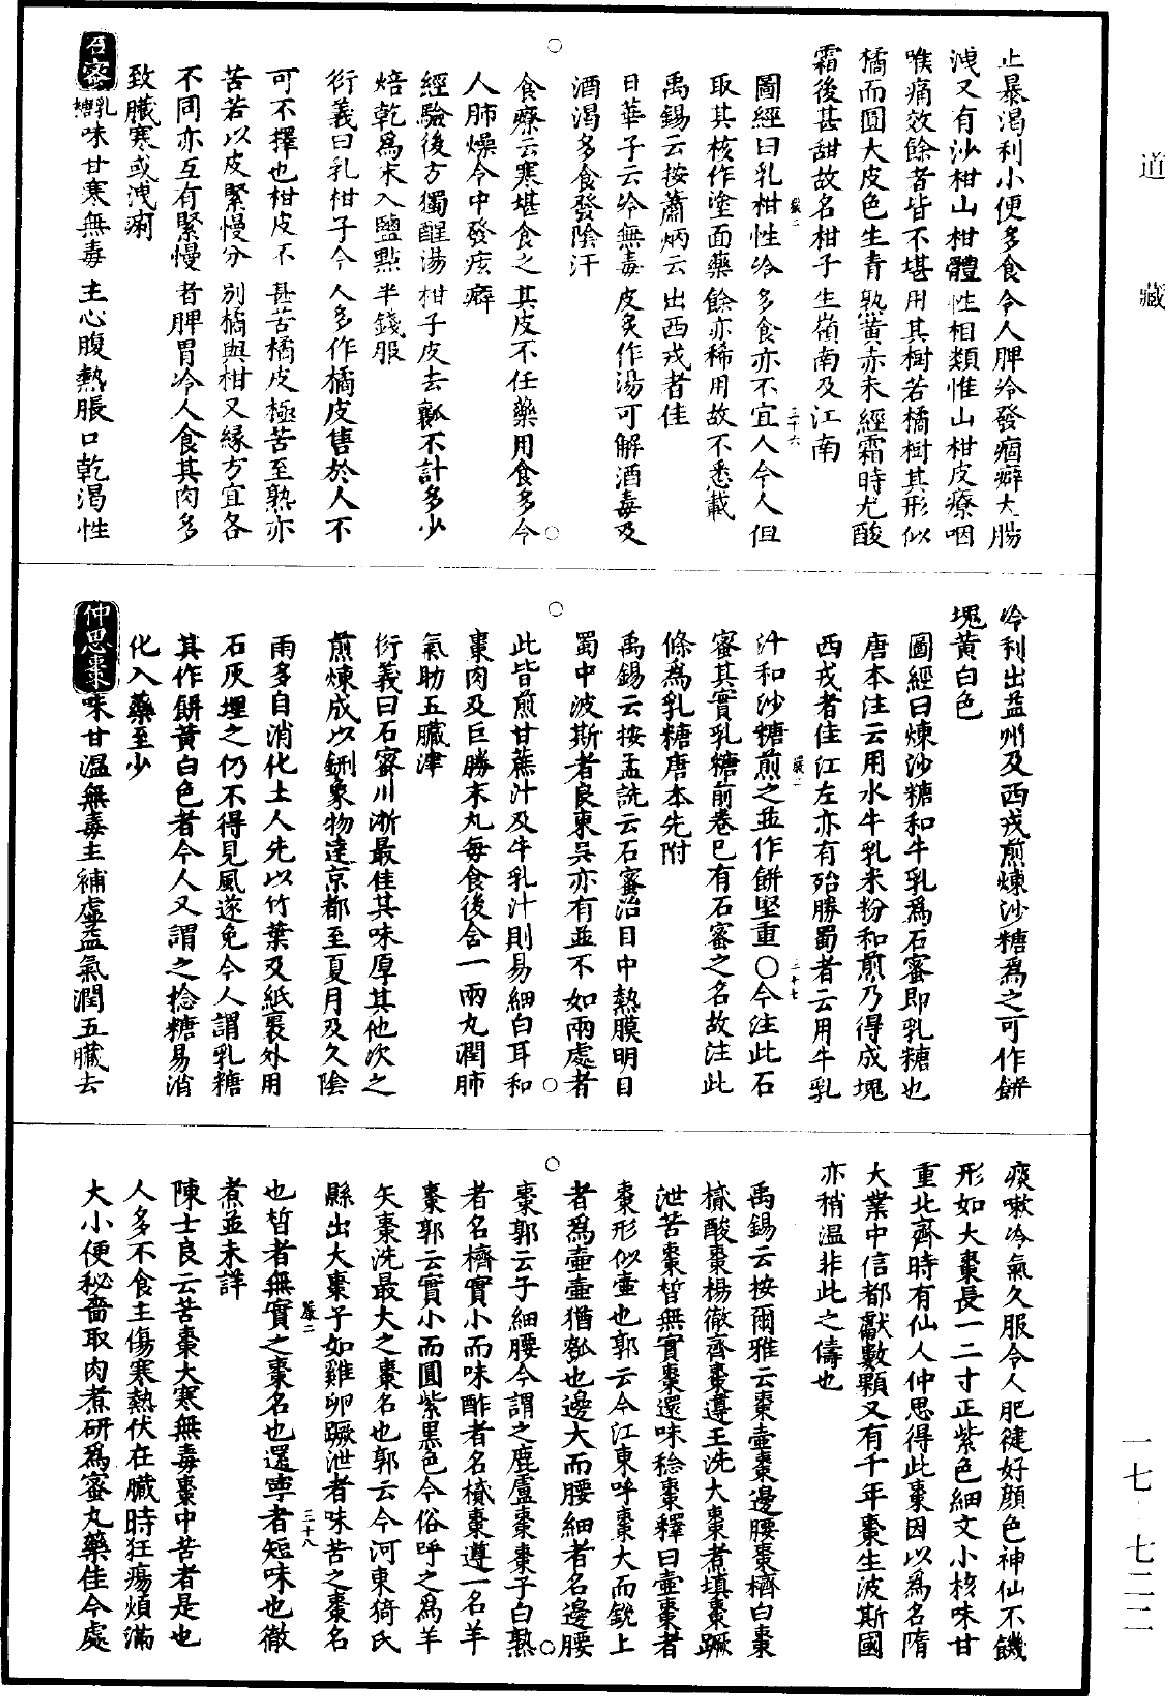 道藏
止暴渴利小便多食令人脾冷發痼癖大腸
洩又有沙柑山柑體性相類惟山柑皮療咽
喉痛效餘者皆不堪用其樹若橘樹其形似
橘而圓大皮色生青熟黃赤未經霜時尤酸
霜後甚甜故名柑子生嶺南及江南
圖經曰乳柑性冷多食亦不宜人今人但
取其核作塗面藥餘亦稀用故不悉載
禹錫云按蕭炳云出西戎者佳
日華子云冷無毒皮炙作湯可解酒毒及
酒渴多食發陰汗
食療云寒堪食之其皮不任藥用食多令
人肺燥冷中發痃癖
經驗後方獨醒湯柑子皮去瓤不計多少
焙乾爲末入鹽點半錢服
衍義曰乳柑子今人多作橘皮售於人不
可不擇也柑皮不甚苦橘皮極苦至熟亦
苦若以皮緊慢分別橘與柑又緣方宜各
不同亦互有緊慢者脾胃冷人食其肉多
致臟寒或洩痢
石蜜乳糖味甘寒無毒主心腹熱脹口乾渴性
冷利出益州及西戎煎煉沙糖爲之可作餅
塊黃白色
圖經曰煉沙糖和牛乳爲石蜜即乳糖也
唐本注云用水牛乳米粉和煎乃得成塊
西戎者佳江左亦有殆勝蜀者云用牛乳
汁和沙糖煎之並作餅堅重○今注此石
蜜其實乳糖前卷已有石蜜之名故注此
條爲乳糖唐本先附
禹錫云按孟詵云石蜜治目中熱膜明目
蜀中波斯者良東吳亦有並不如兩處者
此皆煎甘蔗汁及牛乳汁則易細白耳和
棗肉及巨勝末丸每食後含一兩丸潤肺
氣助五臟津
衍義曰石蜜川浙最佳其味厚其他次之
煎煉成以鉶象物達京都至夏月及久陰
雨多自消化土人先以竹葉及紙裹外用
石灰埋之仍不得見風遂免今人謂乳糖
其作餅黃白色者今人又謂之捻糖易消
化入藥至少
仲思棗味甘溫無毒主補虛益氣潤五臟去
痰嗽冷氣久服令人肥健好顏色神仙不饑
形如大棗長一二寸正紫色細文小核味甘
重北齊時有仙人仲思得此棗因以爲名隋
大業中信都獻數顆又有千年棗生波斯國
亦稍溫非此之儔也
禹錫云按爾雅云棗壺棗邊腰棗櫅白棗
樲酸棗楊徹齊棗遵羊棗洗大棗煮填棗蹶
泄苦棗晳無實棗還味棯棗釋曰壺棗者
棗形似壷也郭云今江東呼棗大而銳上
者爲壷壷猶瓠也邊大而腰細者名邊腰
棗郭云子細腰今謂之鹿盧棗棗子白熟
者名櫅實小而味酢者名樲棗遵一名羊
棗郭云實小而圓紫黑色今俗呼之爲羊
矢棗洗最大之棗名也郭云今河東猗氏
縣出大棗子如雞卵蹶泄者味苦之棗名
也晳者無實之棗名也還𣚴者短味也徹
煮並未詳
陳士良云苦棗大寒無毒棗中苦者是也
人多不食主傷寒熱伏在臟時狂瘍煩滿
大小便秘嗇取肉煮研爲蜜丸藥佳今處
一七·七二二
嚴二
二十六
嚴二
二十七
嚴二
二十八